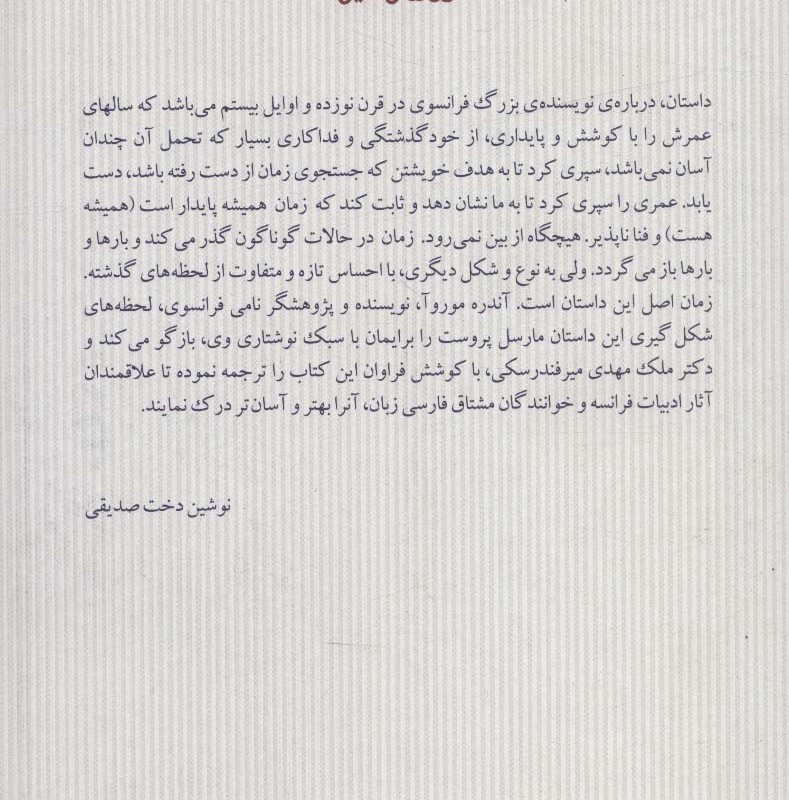 داستان، درباره‌ی نویسنده‌ی بزرگ فرانسوی در قرن نوزده و اوایل بیستم می‌باشد که سالهای
عمرش را با کوشش و پایداری، از خودگذشتگی و فداکاری بسیار که تحمل آن چندان
آسان نمی‌باشد، سپری کرد تا به هدف خویشتن که جستجوی زمان از دست رفته باشد، دست
یابد. عمری را سپری کرد تا به ما نشان دهد و ثابت کند که زمان همیشه پایدار است (همیشه
هست) و فنا ناپذیر. هیچگاه از بین نمی‌رود. زمان در حالات گوناگون گذر می‌کند و بارها و
بارها باز می‌گردد. ولی به نوع و شکل دیگری، با احساس تازه و متفاوت از لحظه‌های گذشته.
زمان اصل این داستان است. آندره موروآ، نویسنده و پژوهشگر نامی فرانسوی، لحظه‌های
شکل گیری این داستان مارسل پروست را برایمان با سبک نوشتاری وی، بازگو می‌کند و
دکتر ملک مهدی میرفندرسکی، با کوشش فراوان این کتاب را ترجمه نموده تا علاقمندان
آثار ادبیات فرانسه و خوانندگان مشتاق فارسی زبان، آنرا بهتر و آسان‌تر درک نمایند.
نوشین دخت صدیقی